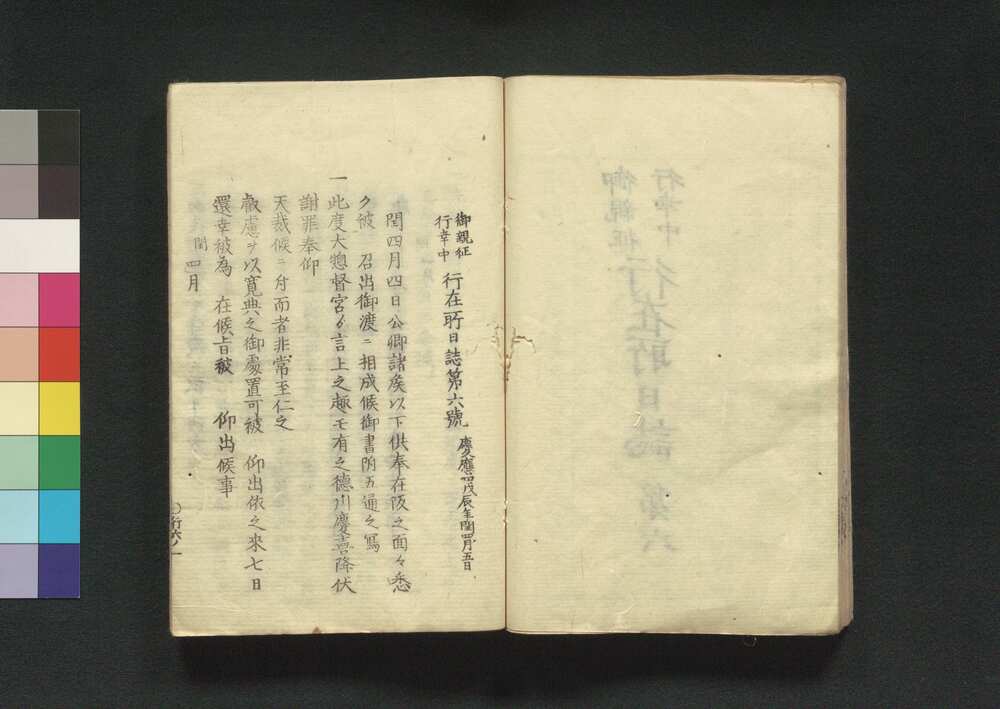 御親征
行幸中
行在所日誌第六號
慶應四戊辰年閏四月五日
閏四月四日公卿諸矦以下供奉在阪之面々悉
ク被　召出御渡ニ相成候御書附五通之寫
一
此度大惣督宮ゟ言上之趣モ有之德川慶喜降伏
謝罪奉仰
天裁候ニ付而者非常至仁之
叡慮ヲ以寬典之御處置可被　仰出依之來七日
還幸被為　在候旨被　仰出候事
閏四月
行六ノ一
行幸中
御親征
行在所日誌　第六